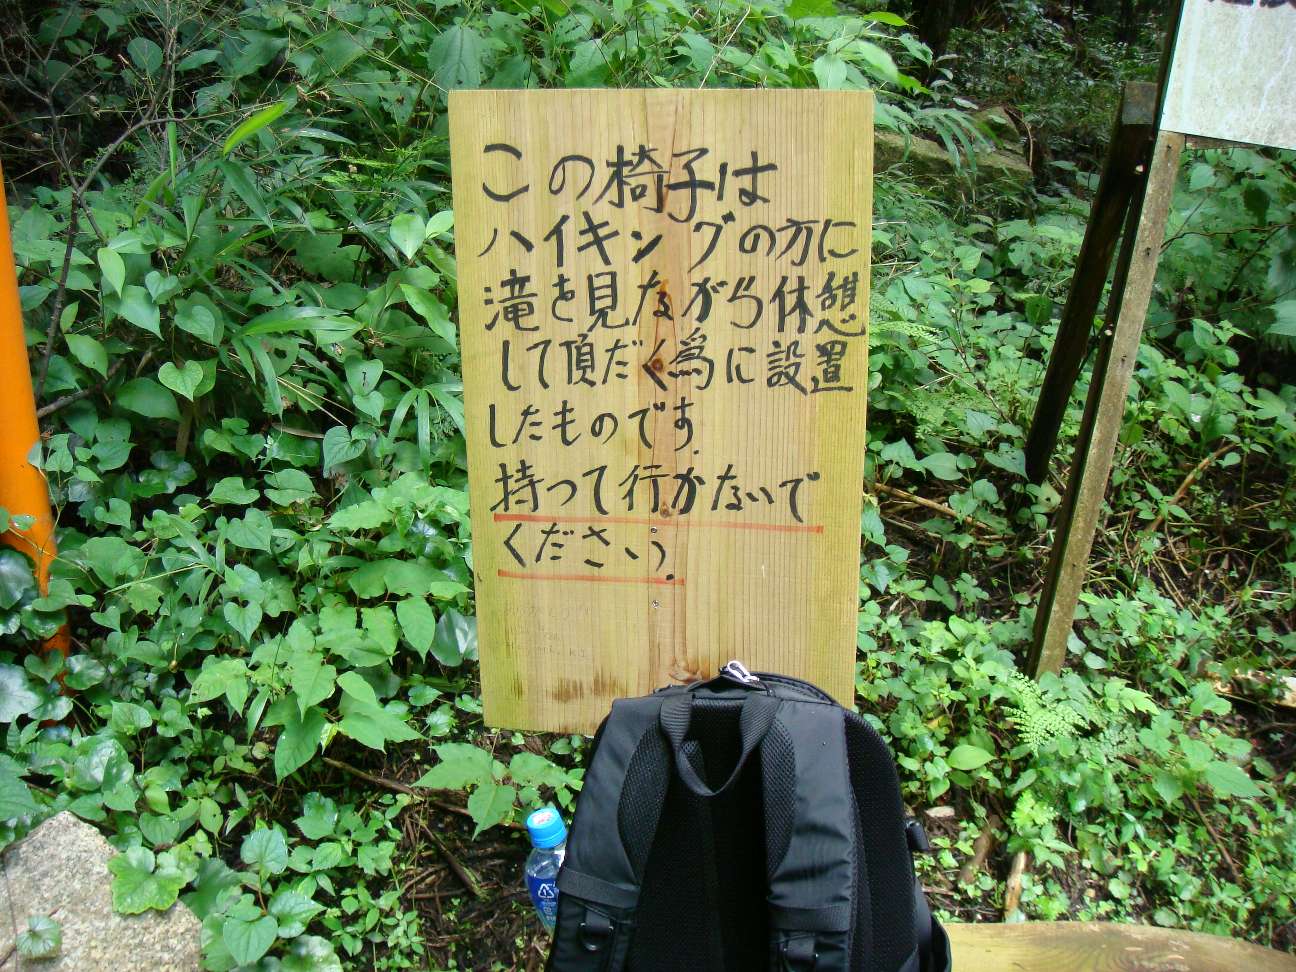 この椅子は
ハイキングの方に
滝を見ながら休憩
して頂だく為に設置
したものです.
持って行かないで
ください.